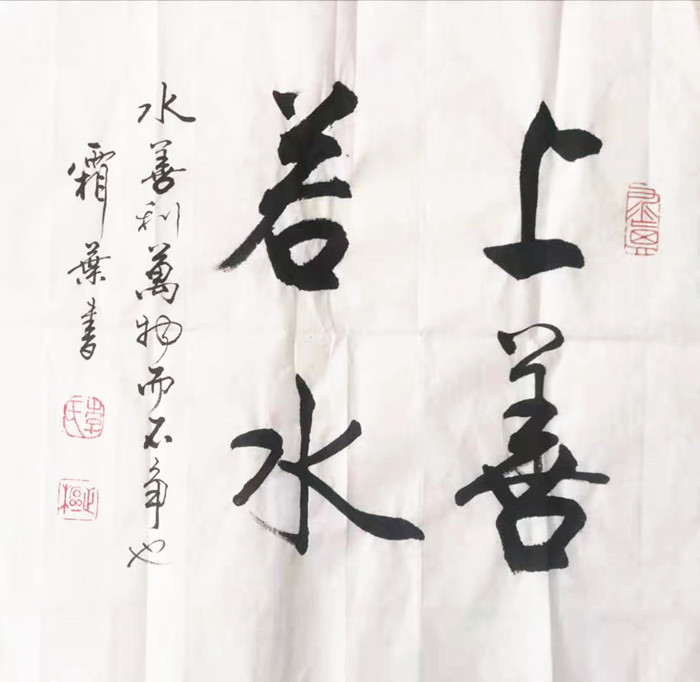 上善
若水
水善利萬物而不争也
霜葉書
李氏